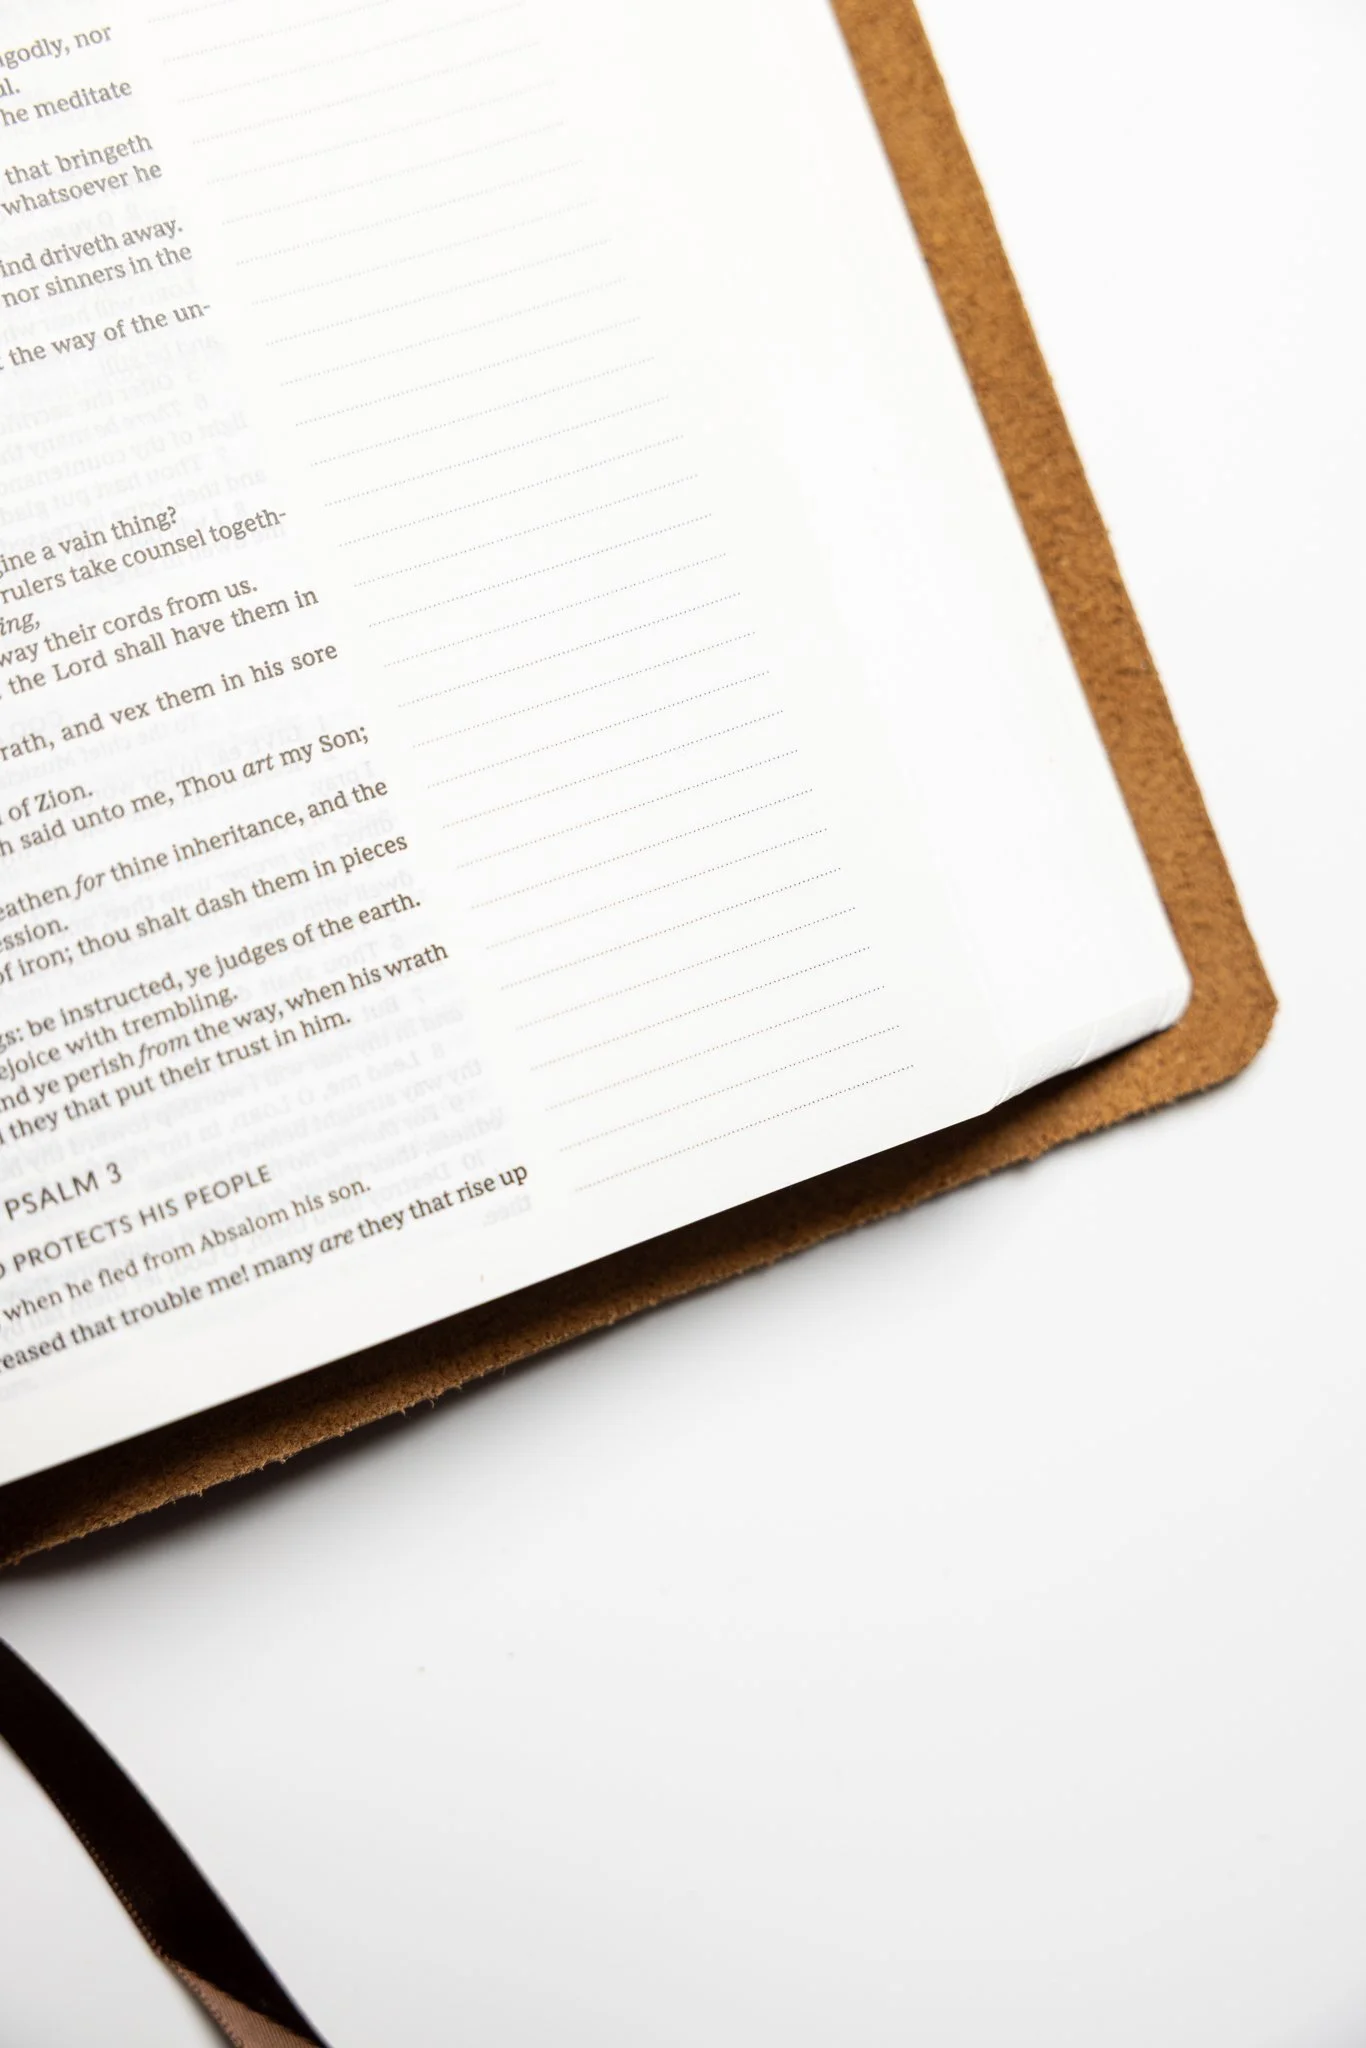 ngodly, nor
ul.
he meditate
that bringeth
whatsoever he
ind driveth away.
nor sinners in the
t the way of the un-
gine a vain thing?
rulers take counsel togeth-
ing,
way their cords from us.
the Lord shall have them in
rath, and vex them in his sore
of Zion.
h said unto me, Thou art my Son;
eathen for thine inheritance, and the
ession.
of iron; thou shalt dash them in pieces
gs: be instructed, ye judges of the earth.
ejoice with trembling.
nd ye perish from the way, when his wrath
l they that put their trust in him.
PSALM 3
D PROTECTS HIS PEOPLE
when he fled from Absalom his son.
reased that trouble me! many are they that rise up